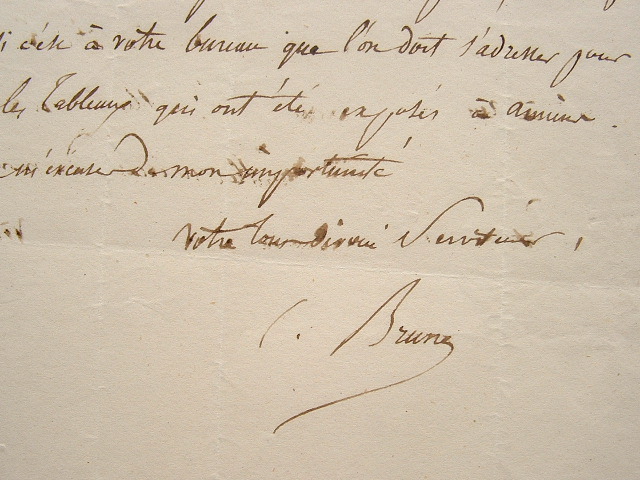 si c'est à votre bureau que l'on doit s'adresser pour
les Tableaux qui ont été exposés à amiens.
m'excuser de mon importunité
votre tout dévoué Serviteur,
C. Brune